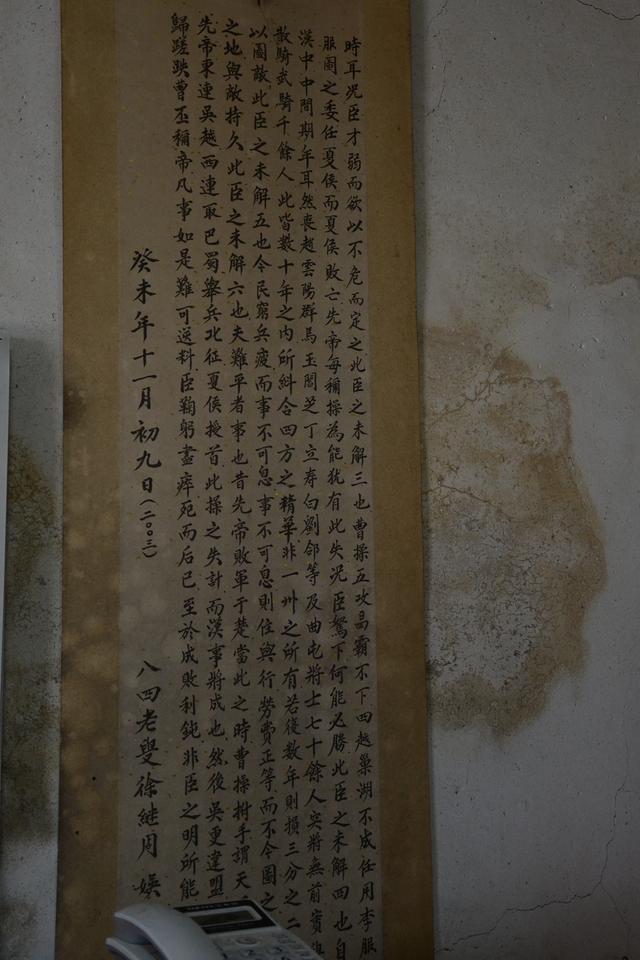 時耳况臣才弱而欲以不危而定之此臣之未解三也曹操五攻昌霸不下四越巢湖不成任用李服
服圖之委任夏侯而夏侯敗亡先帝每稱操為能犹有此失况臣駑下何能必勝此臣之未解四也自
漢中中間期年耳然喪趙雲陽群馬玉閻芝丁立寿白劉郃等及曲屯將士七十餘人突將無前賓
散騎武騎千餘人此皆數十年之內所糾合四方之精華非一州之所有若復數年則損三分之二
以圖敵此臣之未解五也今民窮兵疲而事不可息事不可息則住與行勞費正等而不今圖之
之地與敵持久此臣之未解六也夫難平者事也昔先帝敗軍于楚當此之時曹操拊手謂天
先帝東連吳越西連取巴蜀舉兵北征夏侯授首此操之失計而漢事將成也然後吳更違盟
歸蹉跌曹丕稱帝凡事如是難可逆料臣鞠躬盡瘁死而后已至於成敗利鈍非臣之明所能
癸未年十一月初九日(二〇〇三) 八四老叟徐继周 娱